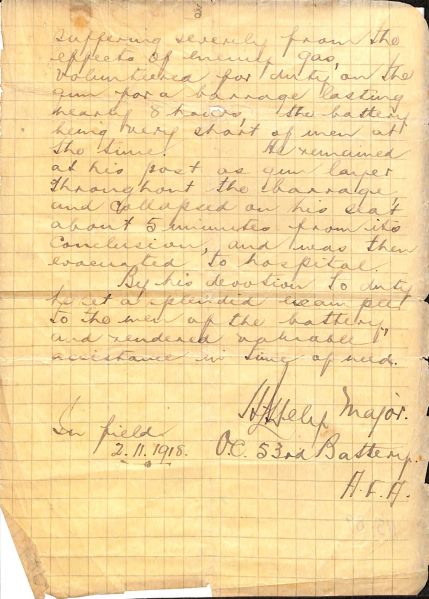 suffering severely from the
effects of enemy gas,
volunteered for duty on the
gun for a barrage lasting
nearly 8 hours, the battery
being very short of men at
the time. He remained
at his post as gun layer
throughout the barrage
and collapsed on his seat
about 5 minutes from its
conclusion, and was then
evacuated to hospital.
By his devotion to duty
he set a splendid example
to the men of the battery,
and rendered valuable
assistance in time of need.
Major.
In field
2.11.1918.
O.C. 53rd Battery.
A.F.A.